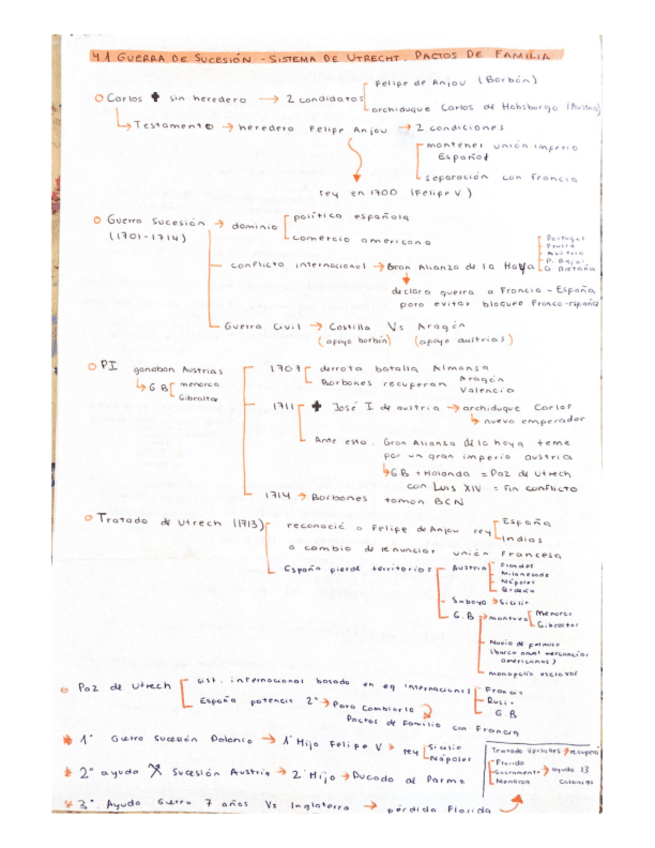 4.1 GUERRA DE SUCESIÓN - SISTEMA DE UTRECHT. PACTOS DE FAMILIA
Felipe de Anjou (Borbón)
Carlos ✝ sin heredero → 2 candidatos
archiduque Carlos de Habsburgo (Austria)
Testamento → heredero Felipe Anjou → 2 condiciones
mantener unión imperio
Español
separación con Francia
rey en 1700 (Felipe V)
Guerra Sucesión → dominio
política española
(1701-1714)
comercio americano
conflicto internacional → Gran Alianza de la Haya
Portugal
Prusia
Austria
P. Bajos
G. Bretaña
declara guerra a Francia - España
para evitar bloqueo Franco-español
Guerra Civil → Castilla Vs Aragón
(apoyo borbón) (apoyo austrias)
PI ganaban Austrias
GB
menorca
Gibraltar
1707
derrota batalla Almansa
Borbones recuperan
Aragón
Valencia
1711
✝ José I de austria → archiduque Carlos
nuevo emperador
Ante esto. Gran Alianza de la haya teme
por un gran imperio austria
GB + Holanda = Paz de Utrech
con Luis XIV = Fin conflicto
1714 → Borbones toman BCN
Tratado de Utrech (1713)
reconoció a Felipe de Anjou rey
España
Indias
a cambio de renunciar unión Francesa
España pierde territorios
Austria
Flandes
Milanesado
Nápoles
Cerdeña
Saboya → Sicilia
G.B → mantuvo
Menorca
Gibraltar
Navío de permiso
(barco anual mercancías
americanas)
monopolio esclavos
Paz de Utrech
sist. internacional basado en eq internacional
Francia
Rusia
G.B
España potencia 2ª → Para cambiarlo
Pactos de Familia con Francia
1º Guerra Sucesión Polonia → 1º Hijo Felipe V → rey
Sicilia
Nápoles
2º ayuda X Sucesión Austria → 2º Hijo → Ducado de Parma
3º. Ayuda Guerra 7 años Vs Inglaterra → pérdida Florida
Tratado Versalles → recupera
Florida
Sacramento
Menorca
ayuda 13
Colonias